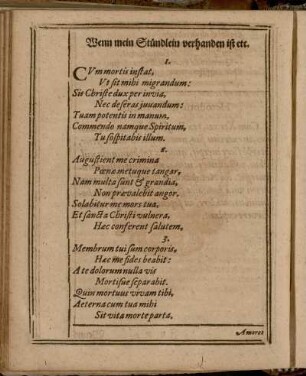 Wenn mein Stündlein verhanden ist etc.
1.
CVm mortis instat,
Vt sit mihi migrandum:
Sis Christe dux per invia,
Nec deseras juvandum:
Tuam potentis in manum,
Commendo namque Spiritum,
Tu sospitabis illum.
2.
Augustient me crimina
Pœnæ metuque tangar,
Nam multa sunt & grandia,
Non prævalebit angor.
Solabitur me mors tua,
Et sancta Christi vulnera,
Hæc conferent salutem,
3.
Membrum tui sum corporis,
Hæc me fides beabit:
A te dolorum nulla vis
Mortisve separabit.
Quin mortuus vivam tibi,
Aeterna cum tua mihi
Sit vita morte parta.